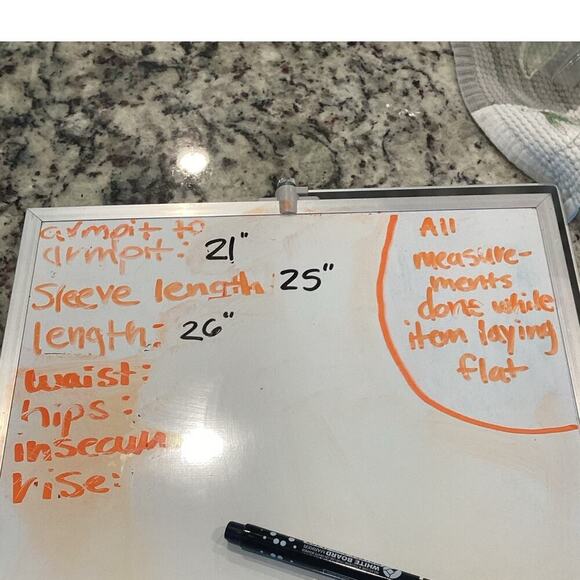 armpit to
armpit: 21"
Sleeve length: 25"
length: 26"
waist:
hips:
insecum
rise:
All
measure-
ments
done while
item laying
flat
WHITE BOARD